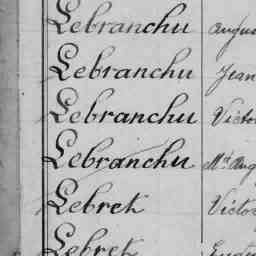 Lebranchu Augus
Lebranchu Jean
Lebranchu Victo
Lebranchu Md Aug
Lebret Victo
Lebret